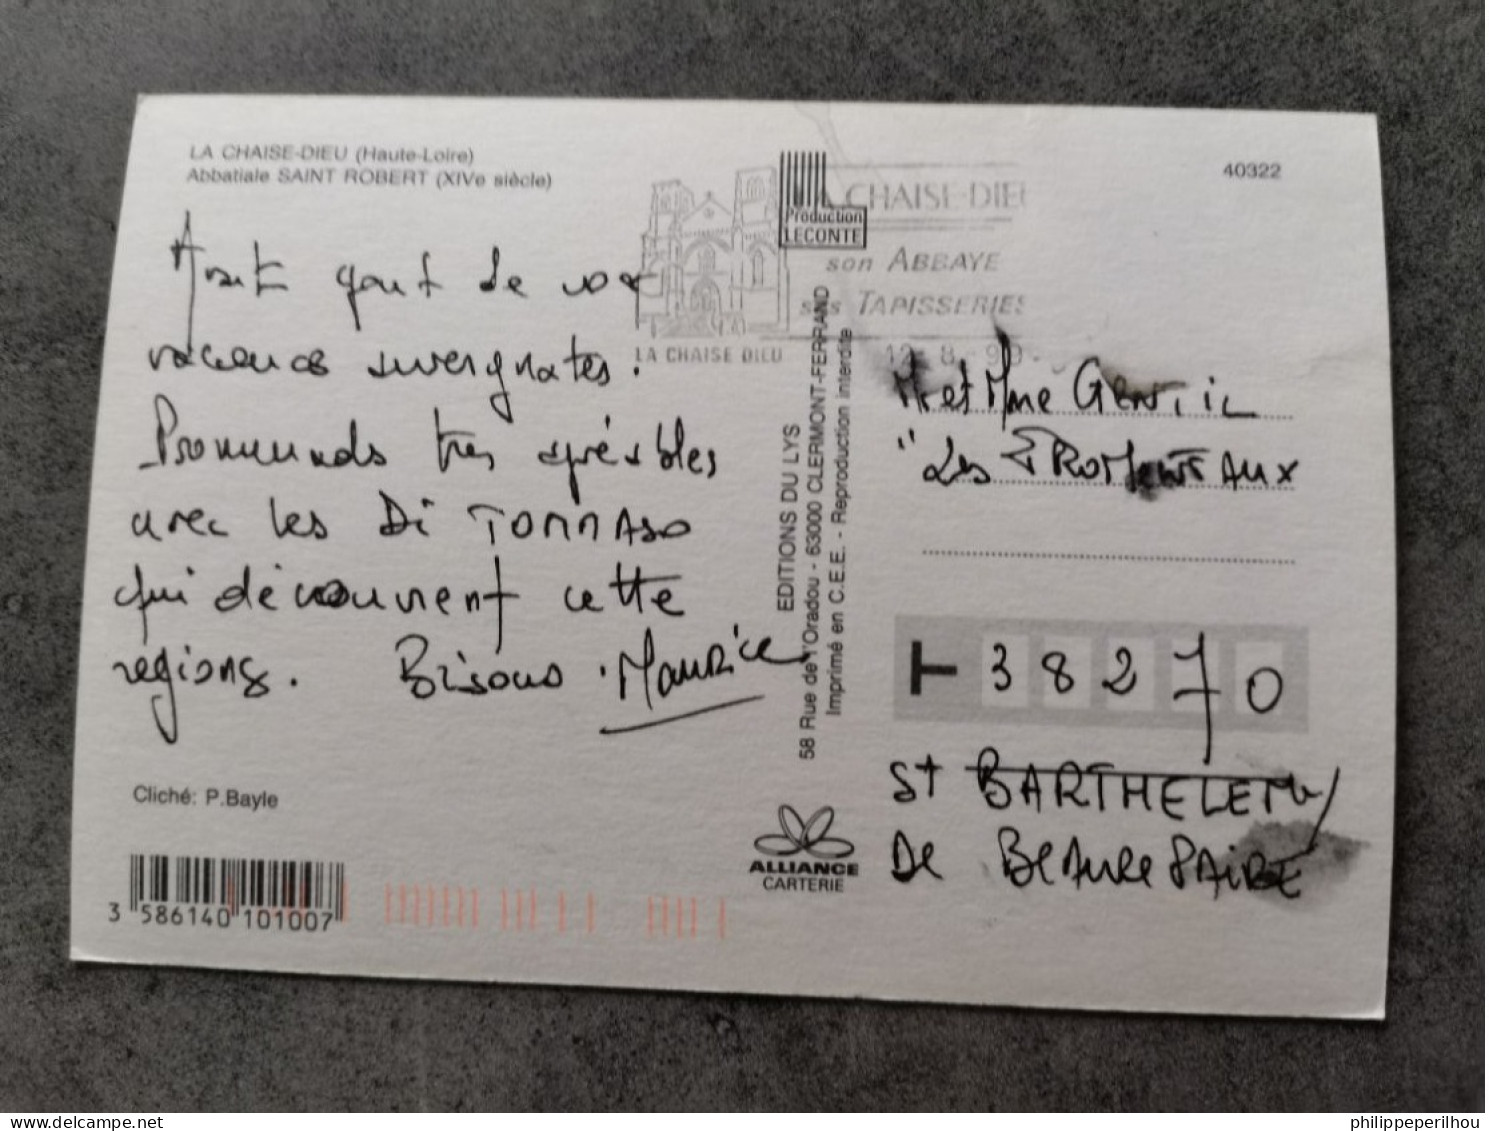 LA CHAISE-DIEU (Haute-Loire)
Abbatiale SAINT ROBERT (XIVe siècle)
Avant gout de vos
vacances auvergnates.
Promenads tres agréables
avec les Di TOMMASO
qui découvrent cette
regions. Bisous. Maurice
Cliché: P.Bayle
3 586140 101007
LA CHAISE DIEU
CHAISE-DIEU
son ABBAYE
ses TAPISSERIES
12-8-99
Production
LECONTE
EDITIONS DU LYS
58 Rue de l'Oradou - 63000 CLERMONT-FERRAND
Imprimé en C.E.E. - Reproduction interdite
ALLIANCE
CARTERIE
40322
Mr et Mme GENTIL
"Les FROMENTEAUX
38270
St BARTHELEMY
De BEAUREPAIRE
delcampe.net
philippeperilhou